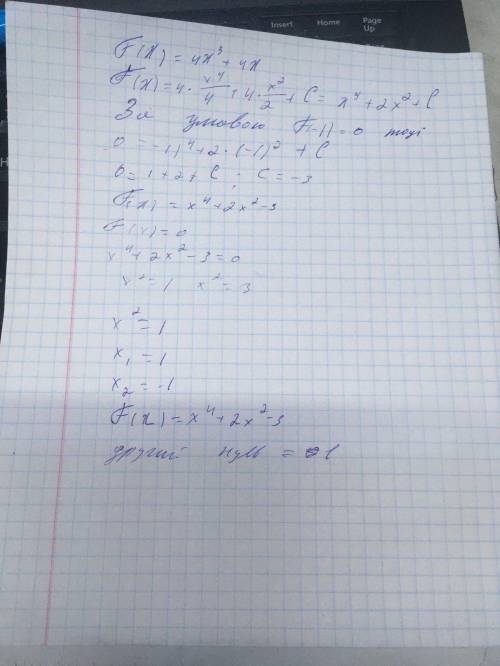 Insert Home Page Up
F(x) = 4x³ + 4x
F(x) = 4 · x⁴/4 + 4 · x²/2 + C = x⁴ + 2x² + C
За умовою F(-1) = 0 тоді
0 = -1)⁴ + 2 · (-1)² + C
0 = 1 + 2 + C ; C = -3
F(x) = x⁴ + 2x² - 3
F(x) = 0
x⁴ + 2x² - 3 = 0
x² = 1 x² = 3
x² = 1
x₁ = 1
x₂ = -1
F(x) = x⁴ + 2x² - 3
другий нуль = 1